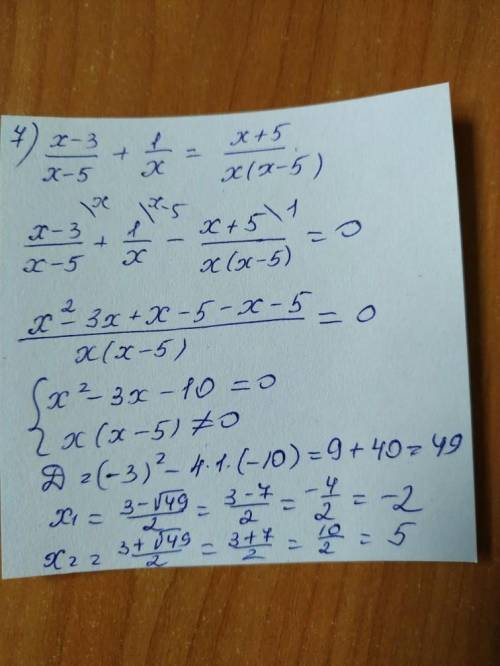 7) (x-3)/(x-5) + 1/x = (x+5)/(x(x-5))
(x-3)/(x-5) \x + 1/x \x-5 - (x+5)/(x(x-5)) \1 = 0
(x² - 3x + x - 5 - x - 5)/(x(x-5)) = 0
{ x² - 3x - 10 = 0
x(x-5) ≠ 0
Д = (-3)² - 4·1·(-10) = 9 + 40 = 49
x₁ = (3-√49)/2 = (3-7)/2 = -4/2 = -2
x₂ = (3+√49)/2 = (3+7)/2 = 10/2 = 5